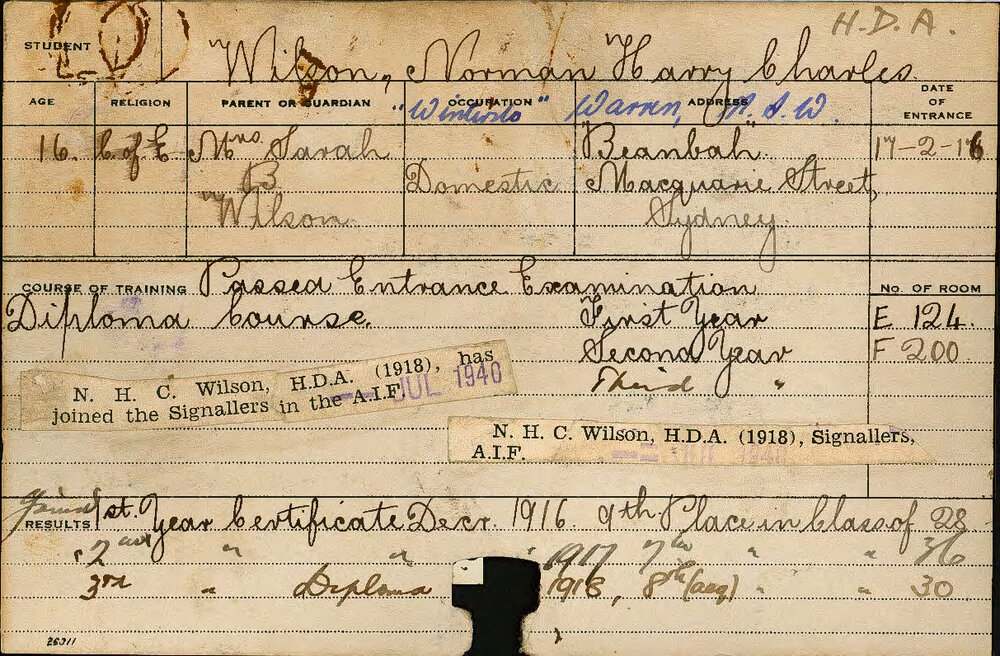 H.D.A.
STUDENT Wilson, Norman Harry Charles.
AGE RELIGION PARENT OR GUARDIAN OCCUPATION ADDRESS DATE OF ENTRANCE
Warren, N.S.W.
16. C of E. Mrs Sarah "Beanbah" 17-2-16
B Domestic Macquarie Street,
Wilson. Sydney.
COURSE OF TRAINING Passed Entrance Examination No. OF ROOM
Diploma Course. First Year E 124.
Second Year F 200.
Third "
N. H. C. Wilson, H.D.A. (1918), has
joined the Signallers in the A.I.F.
JUL 1940
N. H. C. Wilson, H.D.A. (1918), Signallers,
A.I.F.
1940
Gained
RESULTS 1st. Year Certificate Decr. 1916 9th Place in Class of 28
2nd " " " 1917 7th " " 36
3rd " Diploma 1918, 8th (aeq) " " 30
26311